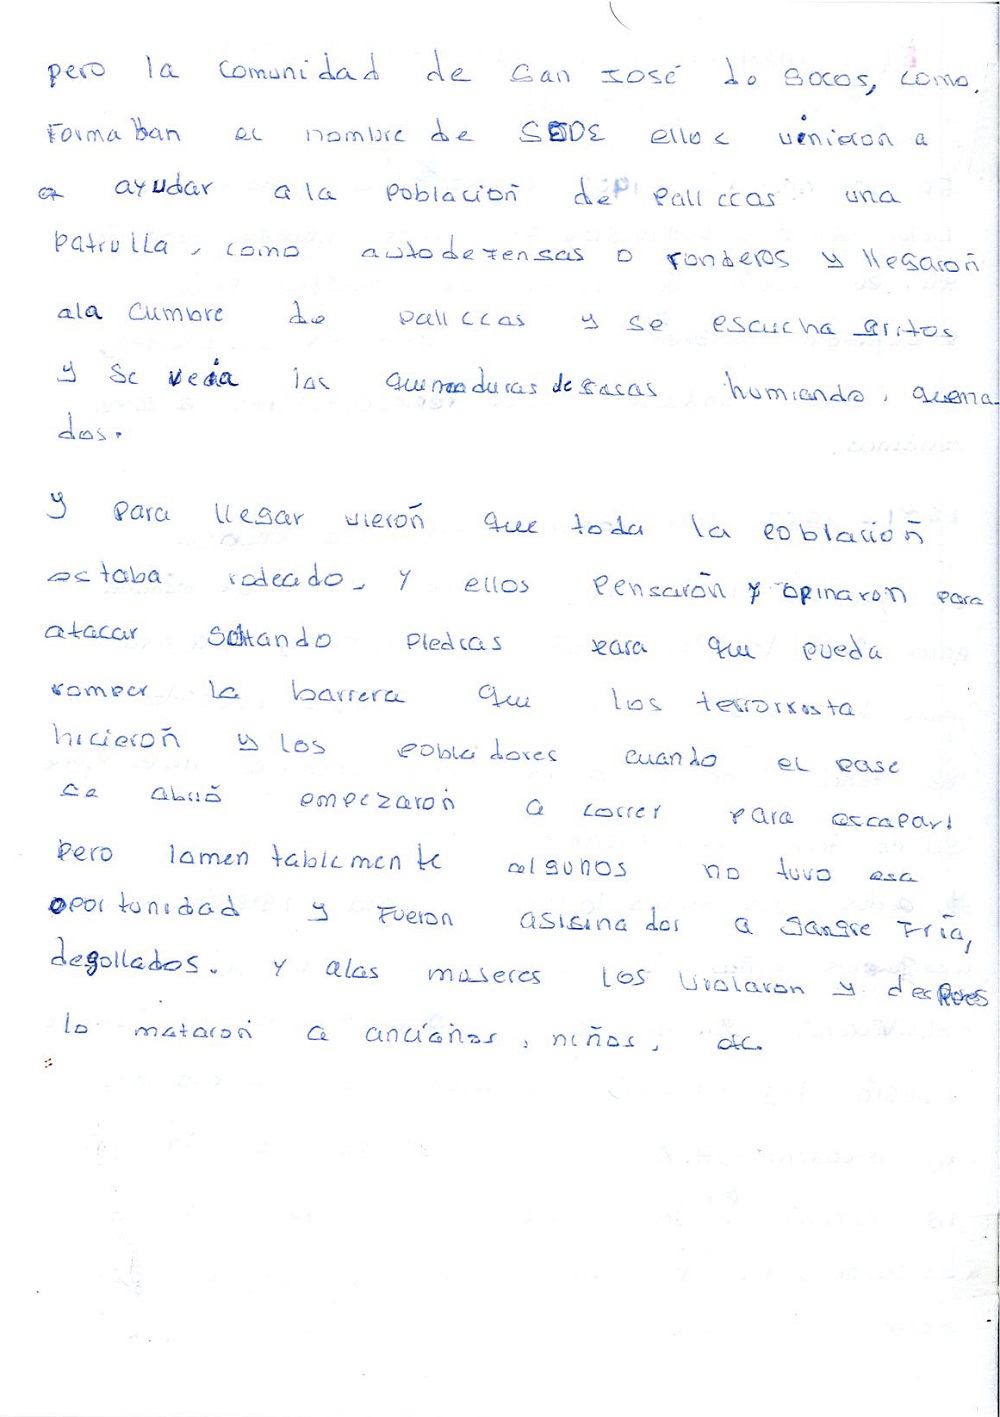 pero la comunidad de San José de Socos, como
Formaban el nombre de SEDE ellos vinieron a
a ayudar a la Población de Pallccas una
Patrulla, como autodefensas o ronderos y llegaroñ
ala cumbre de Pallccas y se escucha gritos
y se veia las quemaduras de casas humiando, quema
dos.
y para llegar vieroñ que toda la Poblacioñ
estaba rodeado. y ellos Pensaroñ y opinaron para
atacar soltando Piedras para que pueda
romper la barrera que los terrorista
hicieroñ y los Pobladores cuando el Pase
se abrió empezaron a correr para escapar!
Pero lamentablemente algunos no tuvo esa
oportunidad y Fueron asisinados a Sangre Fría,
degollados. y alas museres los violaron y despues
lo mataroñ a ancianos, niños, etc.